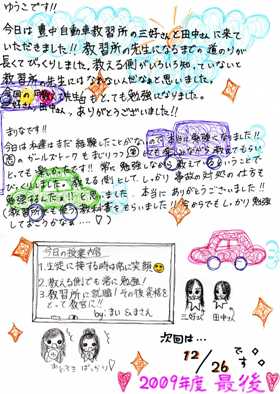 ゆうこです!!
今日は豊中自動車教習所の三好さんと田中さんに来て
いただきました!! 教習所の先生になるまでの道のりが
長くてびっくりしました。教える側がいろいろ知っていないと
教習所の先生にはなれないんだなぁと思いました。
今回の
もとても勉強になりました。
三好さん、田中さん、ありがとうございました!!
まりなです!!
今日は本当はまだ経験したことがない
勉強になりました!!
のガールズトークもまじりつつ
教えてもらい
とっても楽しかったです!!
常に勉強しながら教えているということで
びっくりしました。教える側として、しっかり事故の対処の仕方も
勉強しないと!!と思いました。本当にありがとうございました!!
教習所でも使う教科書をもらいました!!今からでもしっかり勉強
しておこうかなぁ……♡
今日の授業内容
1.生徒に接する時は常に笑顔
2.教える側でも常に勉強!
3.教習所に就職!その後資格を
とって教官に!!
by:まい&まさえ
三好さん
田中さん
次回は…
12/26です。
2009年度 最後